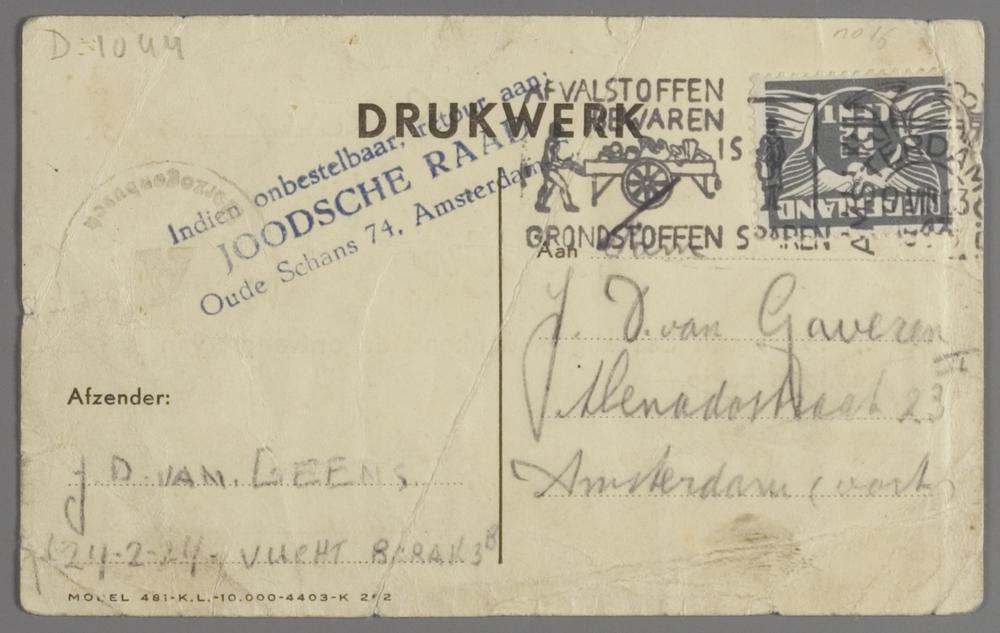 D-1044
DRUKWERK
Indien onbestelbaar, retour aan:
JOODSCHE RAAD
Oude Schans 74, Amsterdam
AFVALSTOFFEN
BEWAREN
IS
GRONDSTOFFEN SPAREN
NEDERLAND
AMSTERDAM
Aan
J. D. van Gaveren
Menadostraat 23 II
Amsterdam (oost)
Afzender:
J. D. VAN. GEENS.
24-2-24. VUCHT BARAK 3B
MODEL 481-K.L.-10.000-4403-K 262